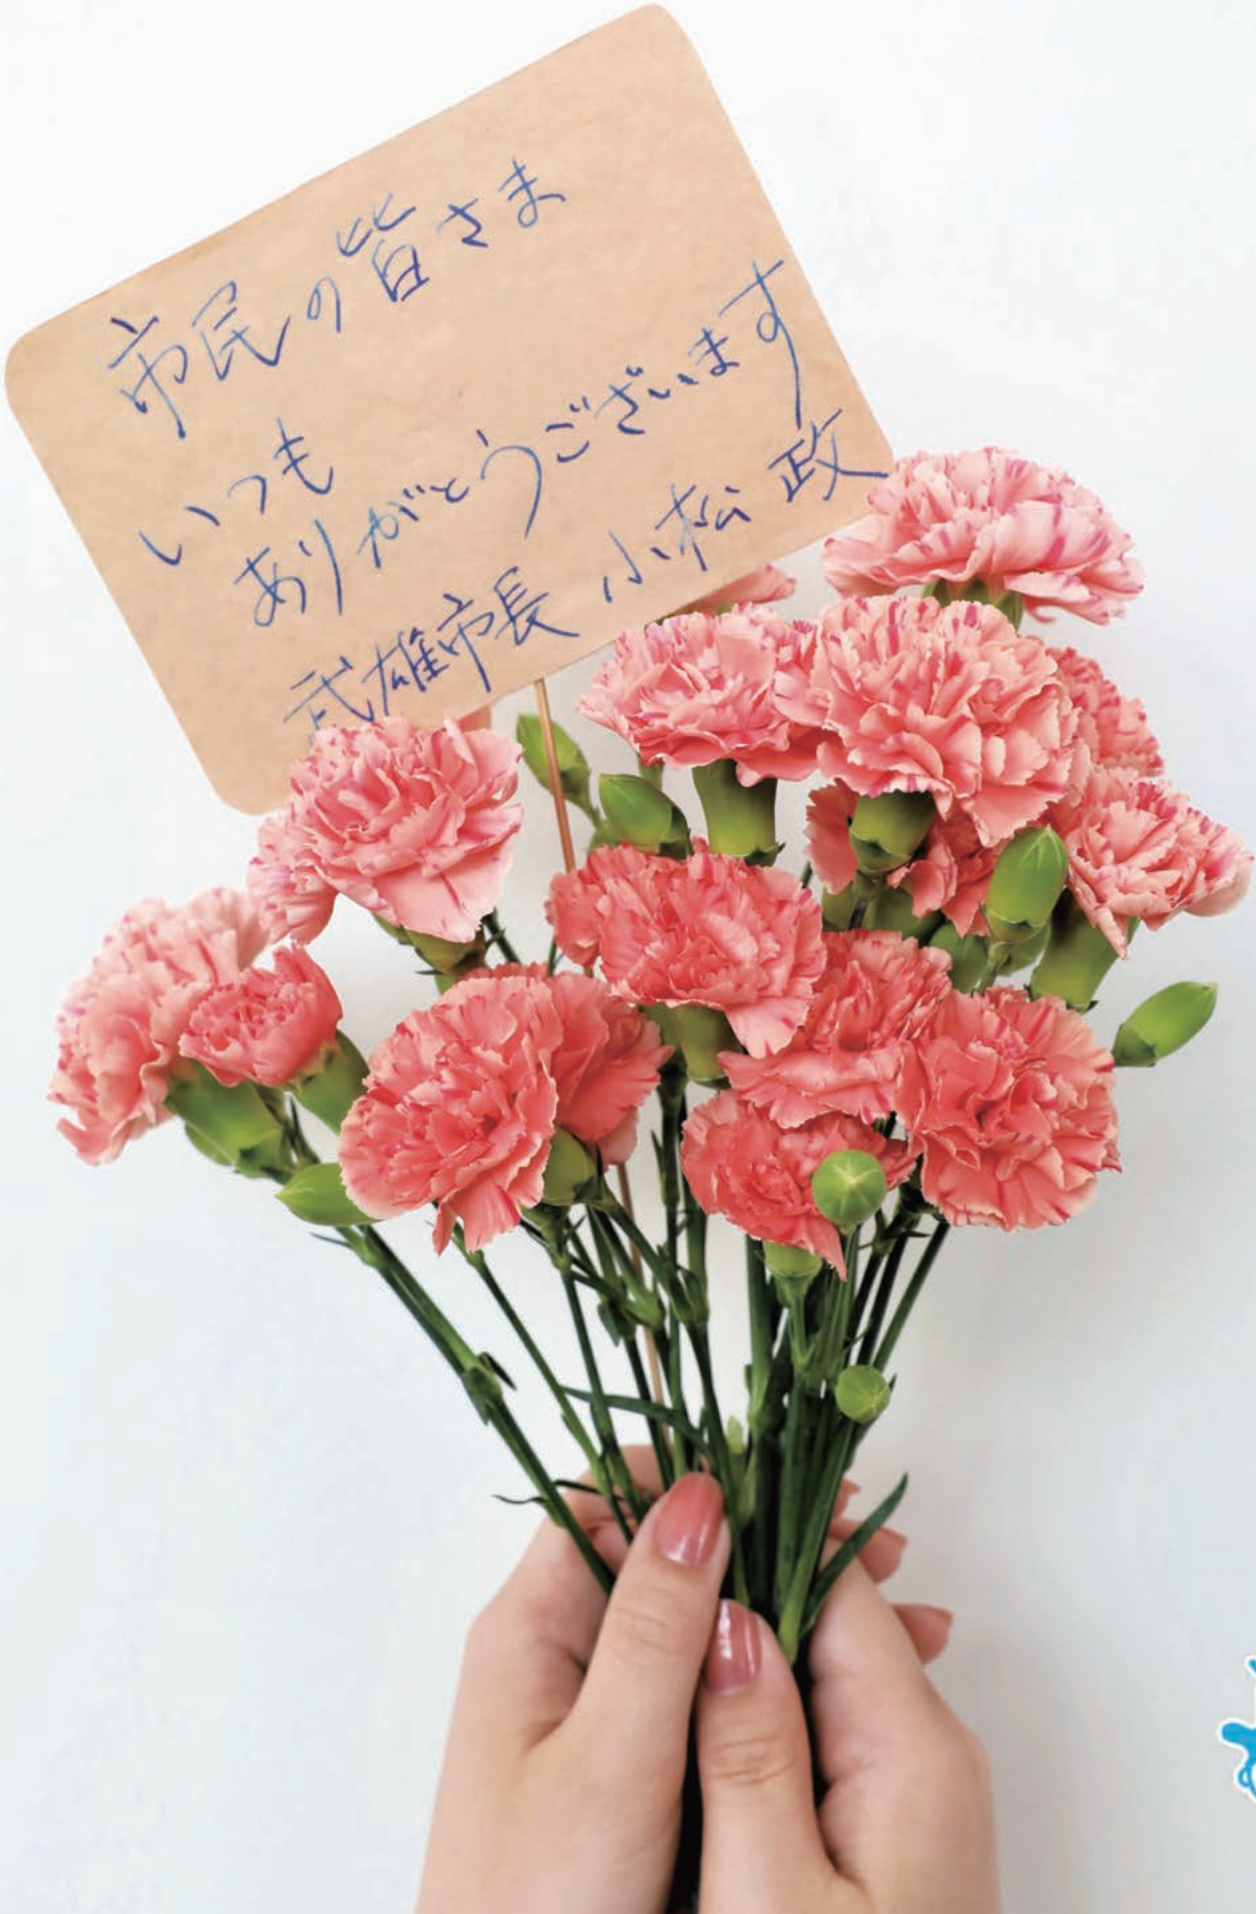 市民の皆さま
いつも
ありがとうございます
武雄市長 小松 政